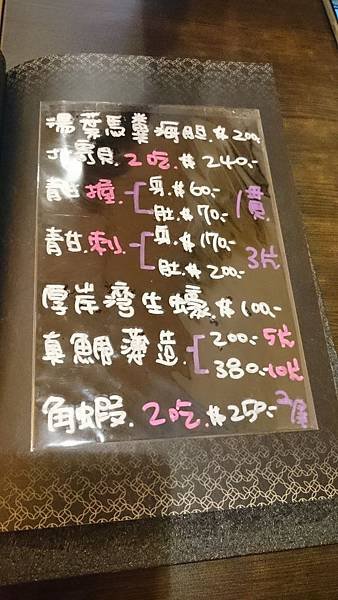 湯葉馬糞海胆.$200.
北寄貝.2吃.$240.-
青甘.握.身.$60.- 1貫
肚.$70.-
青甘.刺.身.$170.- 3片
肚.$200.-
厚岸灣生蠔.$100.-
真鯛薄造 200.-5片
380.-10片
角蝦.2吃.$250.-2隻